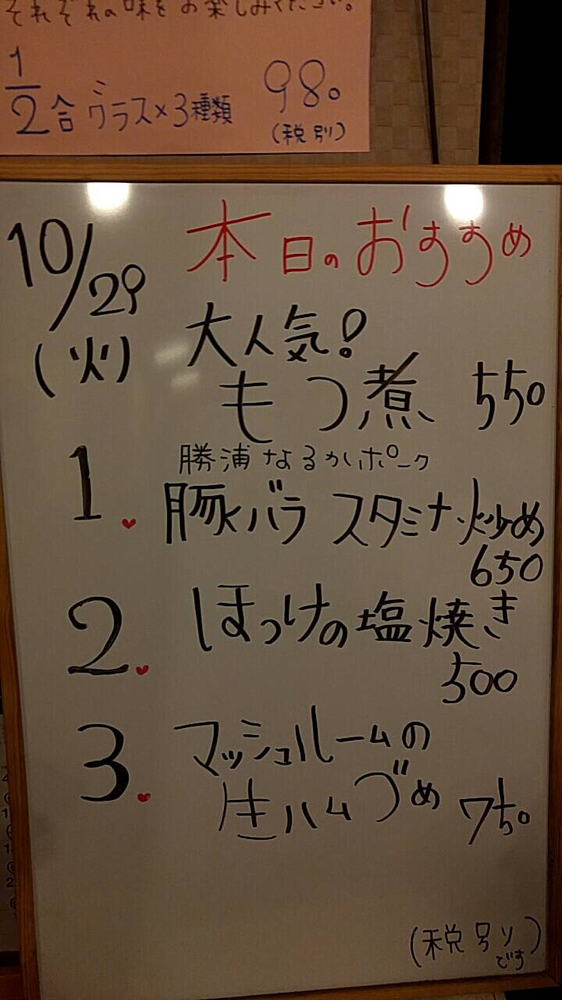 それぞれの味をお楽しみください。
1/2合グラス×3種類 980
(税別)
10/29
(火)
本日のおすすめ
大人気!
もつ煮 550
勝浦なるかいポーク
1. 豚バラスタミナ炒め
650
2. ほっけの塩焼き
500
3. マッシュルームの
生ハムづめ 750
(税別り
です)